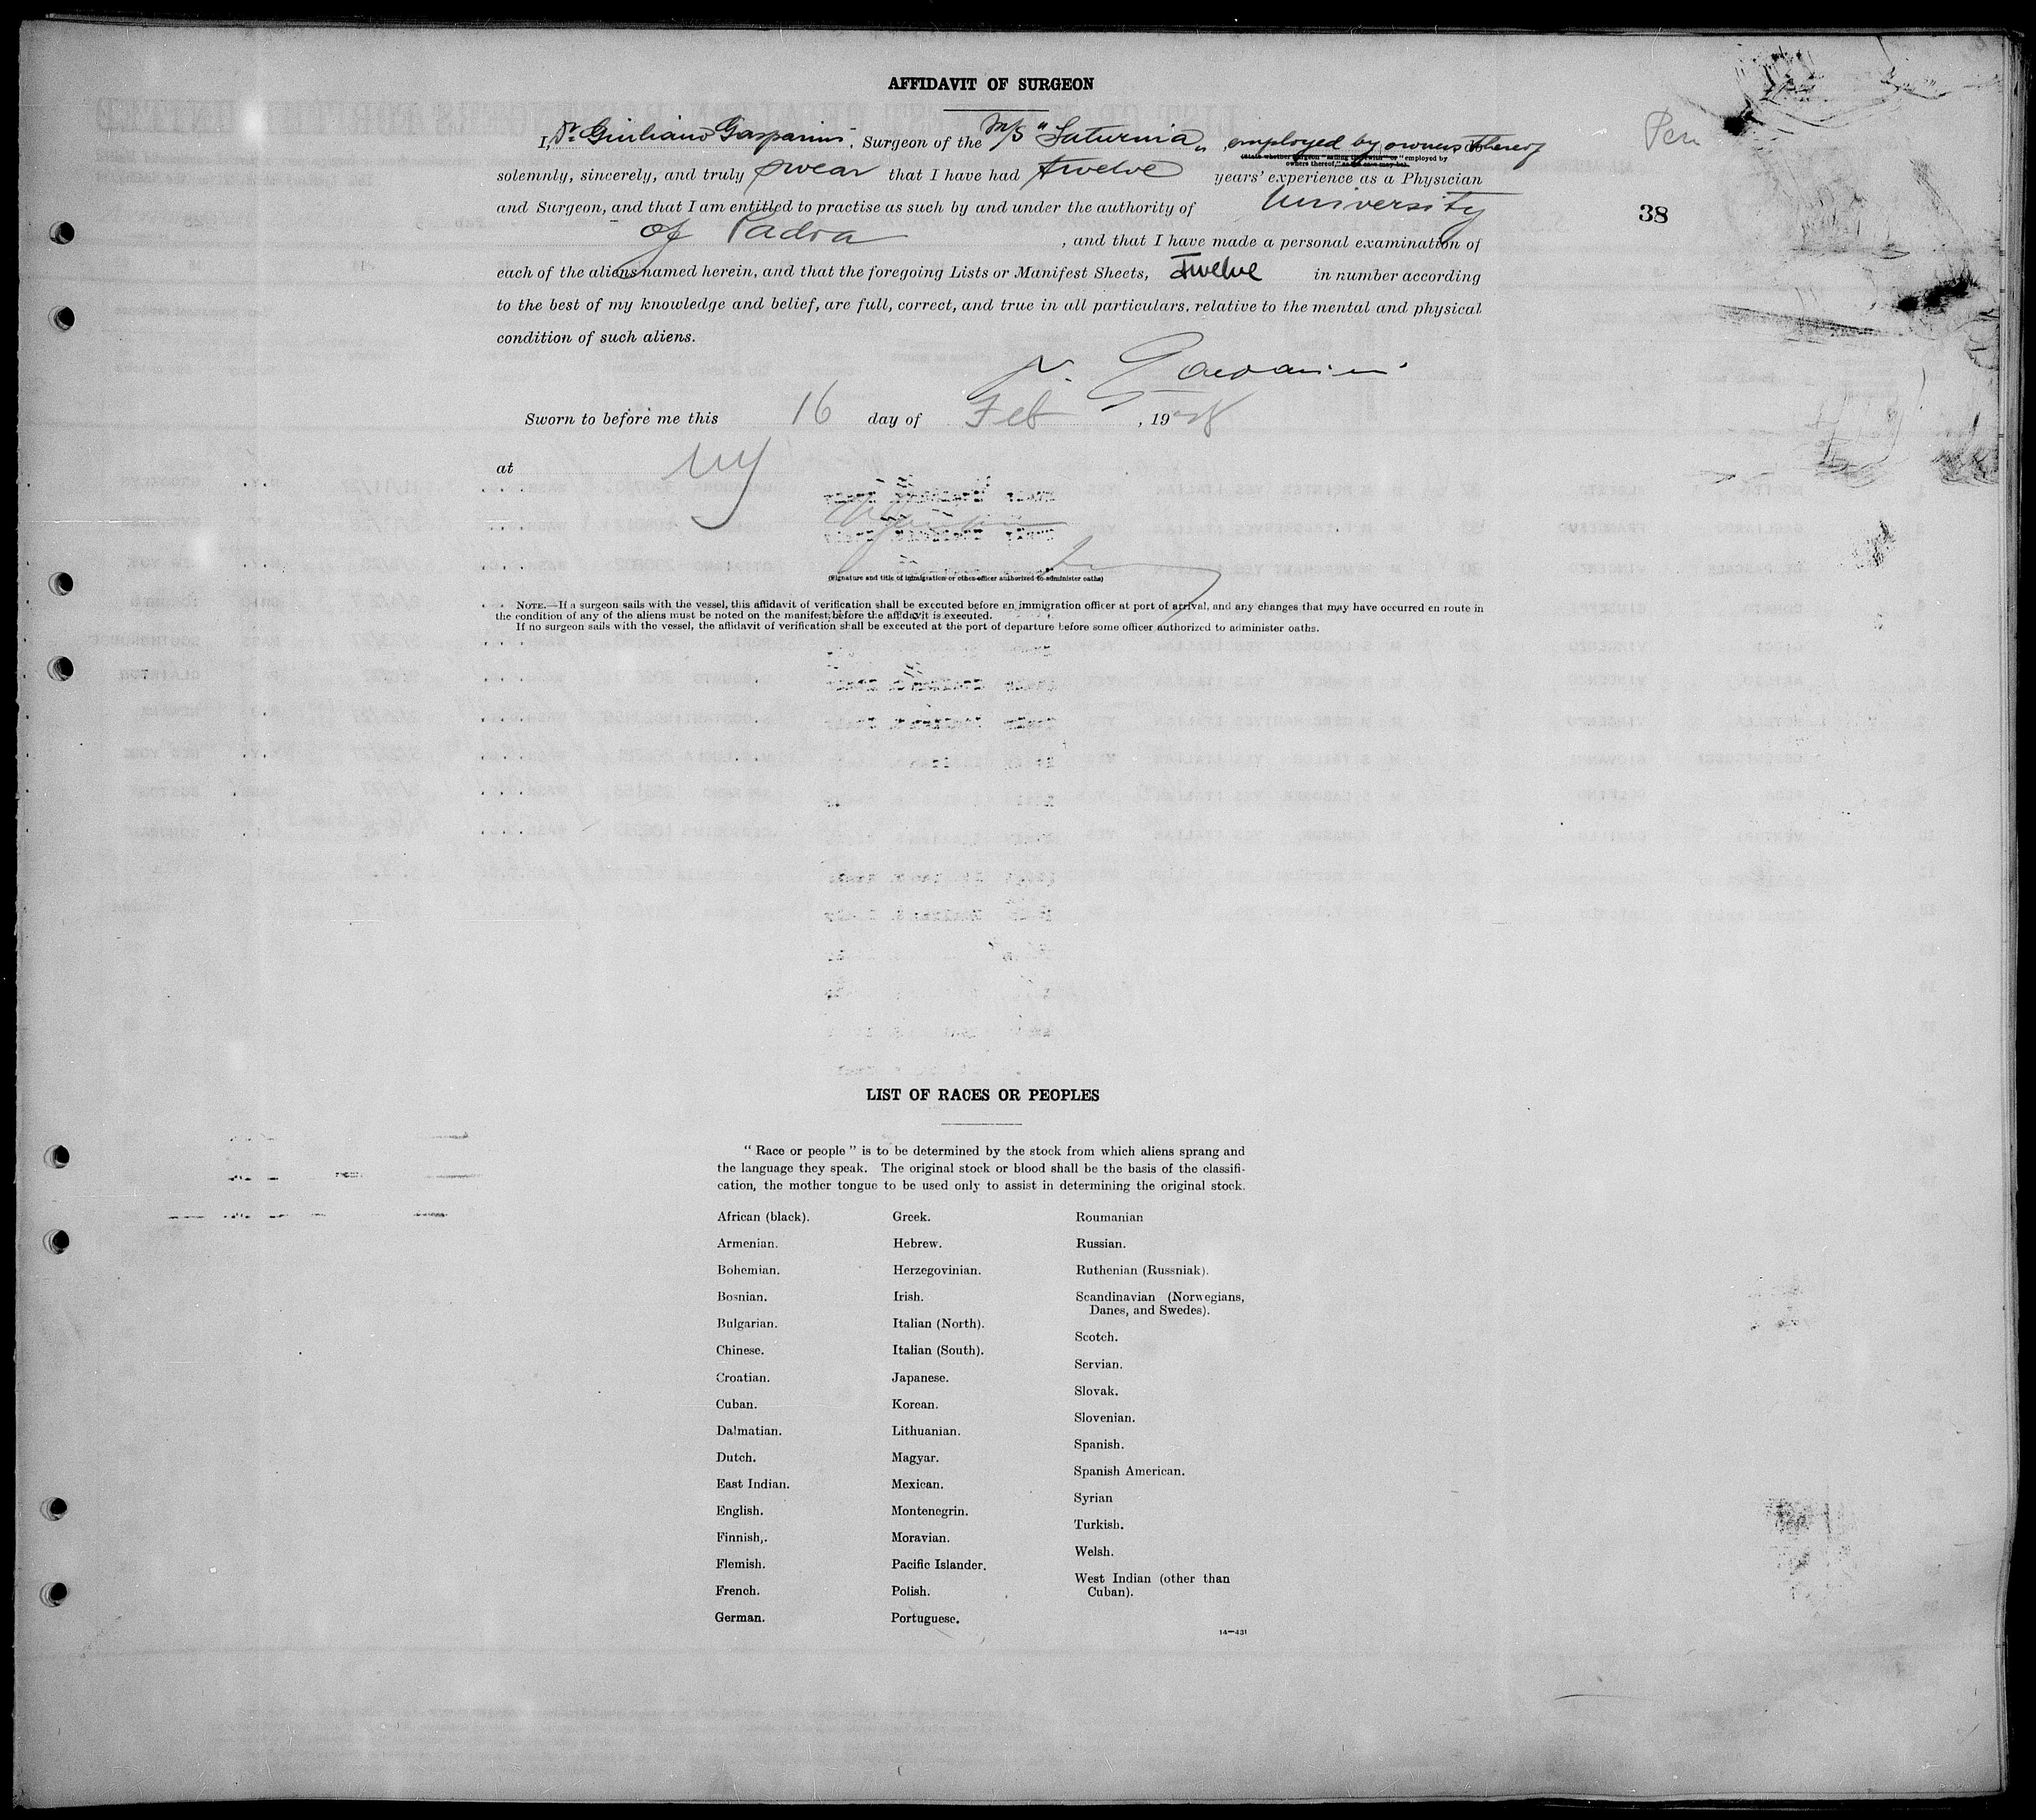 AFFIDAVIT OF SURGEON
I, Dr Giuliano Gasparini, Surgeon of the M/S "Saturnia", employed by owners thereof
(State whether surgeon "sailing therewith" or "employed by
owners thereof," as the case may be).
solemnly, sincerely, and truly swear that I have had twelve years' experience as a Physician
and Surgeon, and that I am entitled to practise as such by and under the authority of University
of Padva, and that I have made a personal examination of
each of the aliens named herein, and that the foregoing Lists or Manifest Sheets, twelve in number according
to the best of my knowledge and belief, are full, correct, and true in all particulars, relative to the mental and physical
condition of such aliens.
Gasparini
Sworn to before me this 16 day of Feb, 1928
at NY
(Signature and title of immigration or other officer authorized to administer oaths)
NOTE.—If a surgeon sails with the vessel, this affidavit of verification shall be executed before an immigration officer at port of arrival, and any changes that may have occurred en route in
the condition of any of the aliens must be noted on the manifest before the affidavit is executed.
If no surgeon sails with the vessel, the affidavit of verification shall be executed at the port of departure before some officer authorized to administer oaths.
38
LIST OF RACES OR PEOPLES
"Race or people" is to be determined by the stock from which aliens sprang and
the language they speak. The original stock or blood shall be the basis of the classifi-
cation, the mother tongue to be used only to assist in determining the original stock.
African (black).
Armenian.
Bohemian.
Bosnian.
Bulgarian.
Chinese.
Croatian.
Cuban.
Dalmatian.
Dutch.
East Indian.
English.
Finnish,.
Flemish.
French.
German.
Greek.
Hebrew.
Herzegovinian.
Irish.
Italian (North).
Italian (South).
Japanese.
Korean.
Lithuanian.
Magyar.
Mexican.
Montenegrin.
Moravian.
Pacific Islander.
Polish.
Portuguese.
Roumanian
Russian.
Ruthenian (Russniak).
Scandinavian (Norwegians,
Danes, and Swedes).
Scotch.
Servian.
Slovak.
Slovenian.
Spanish.
Spanish American.
Syrian
Turkish.
Welsh.
West Indian (other than
Cuban).
14—431